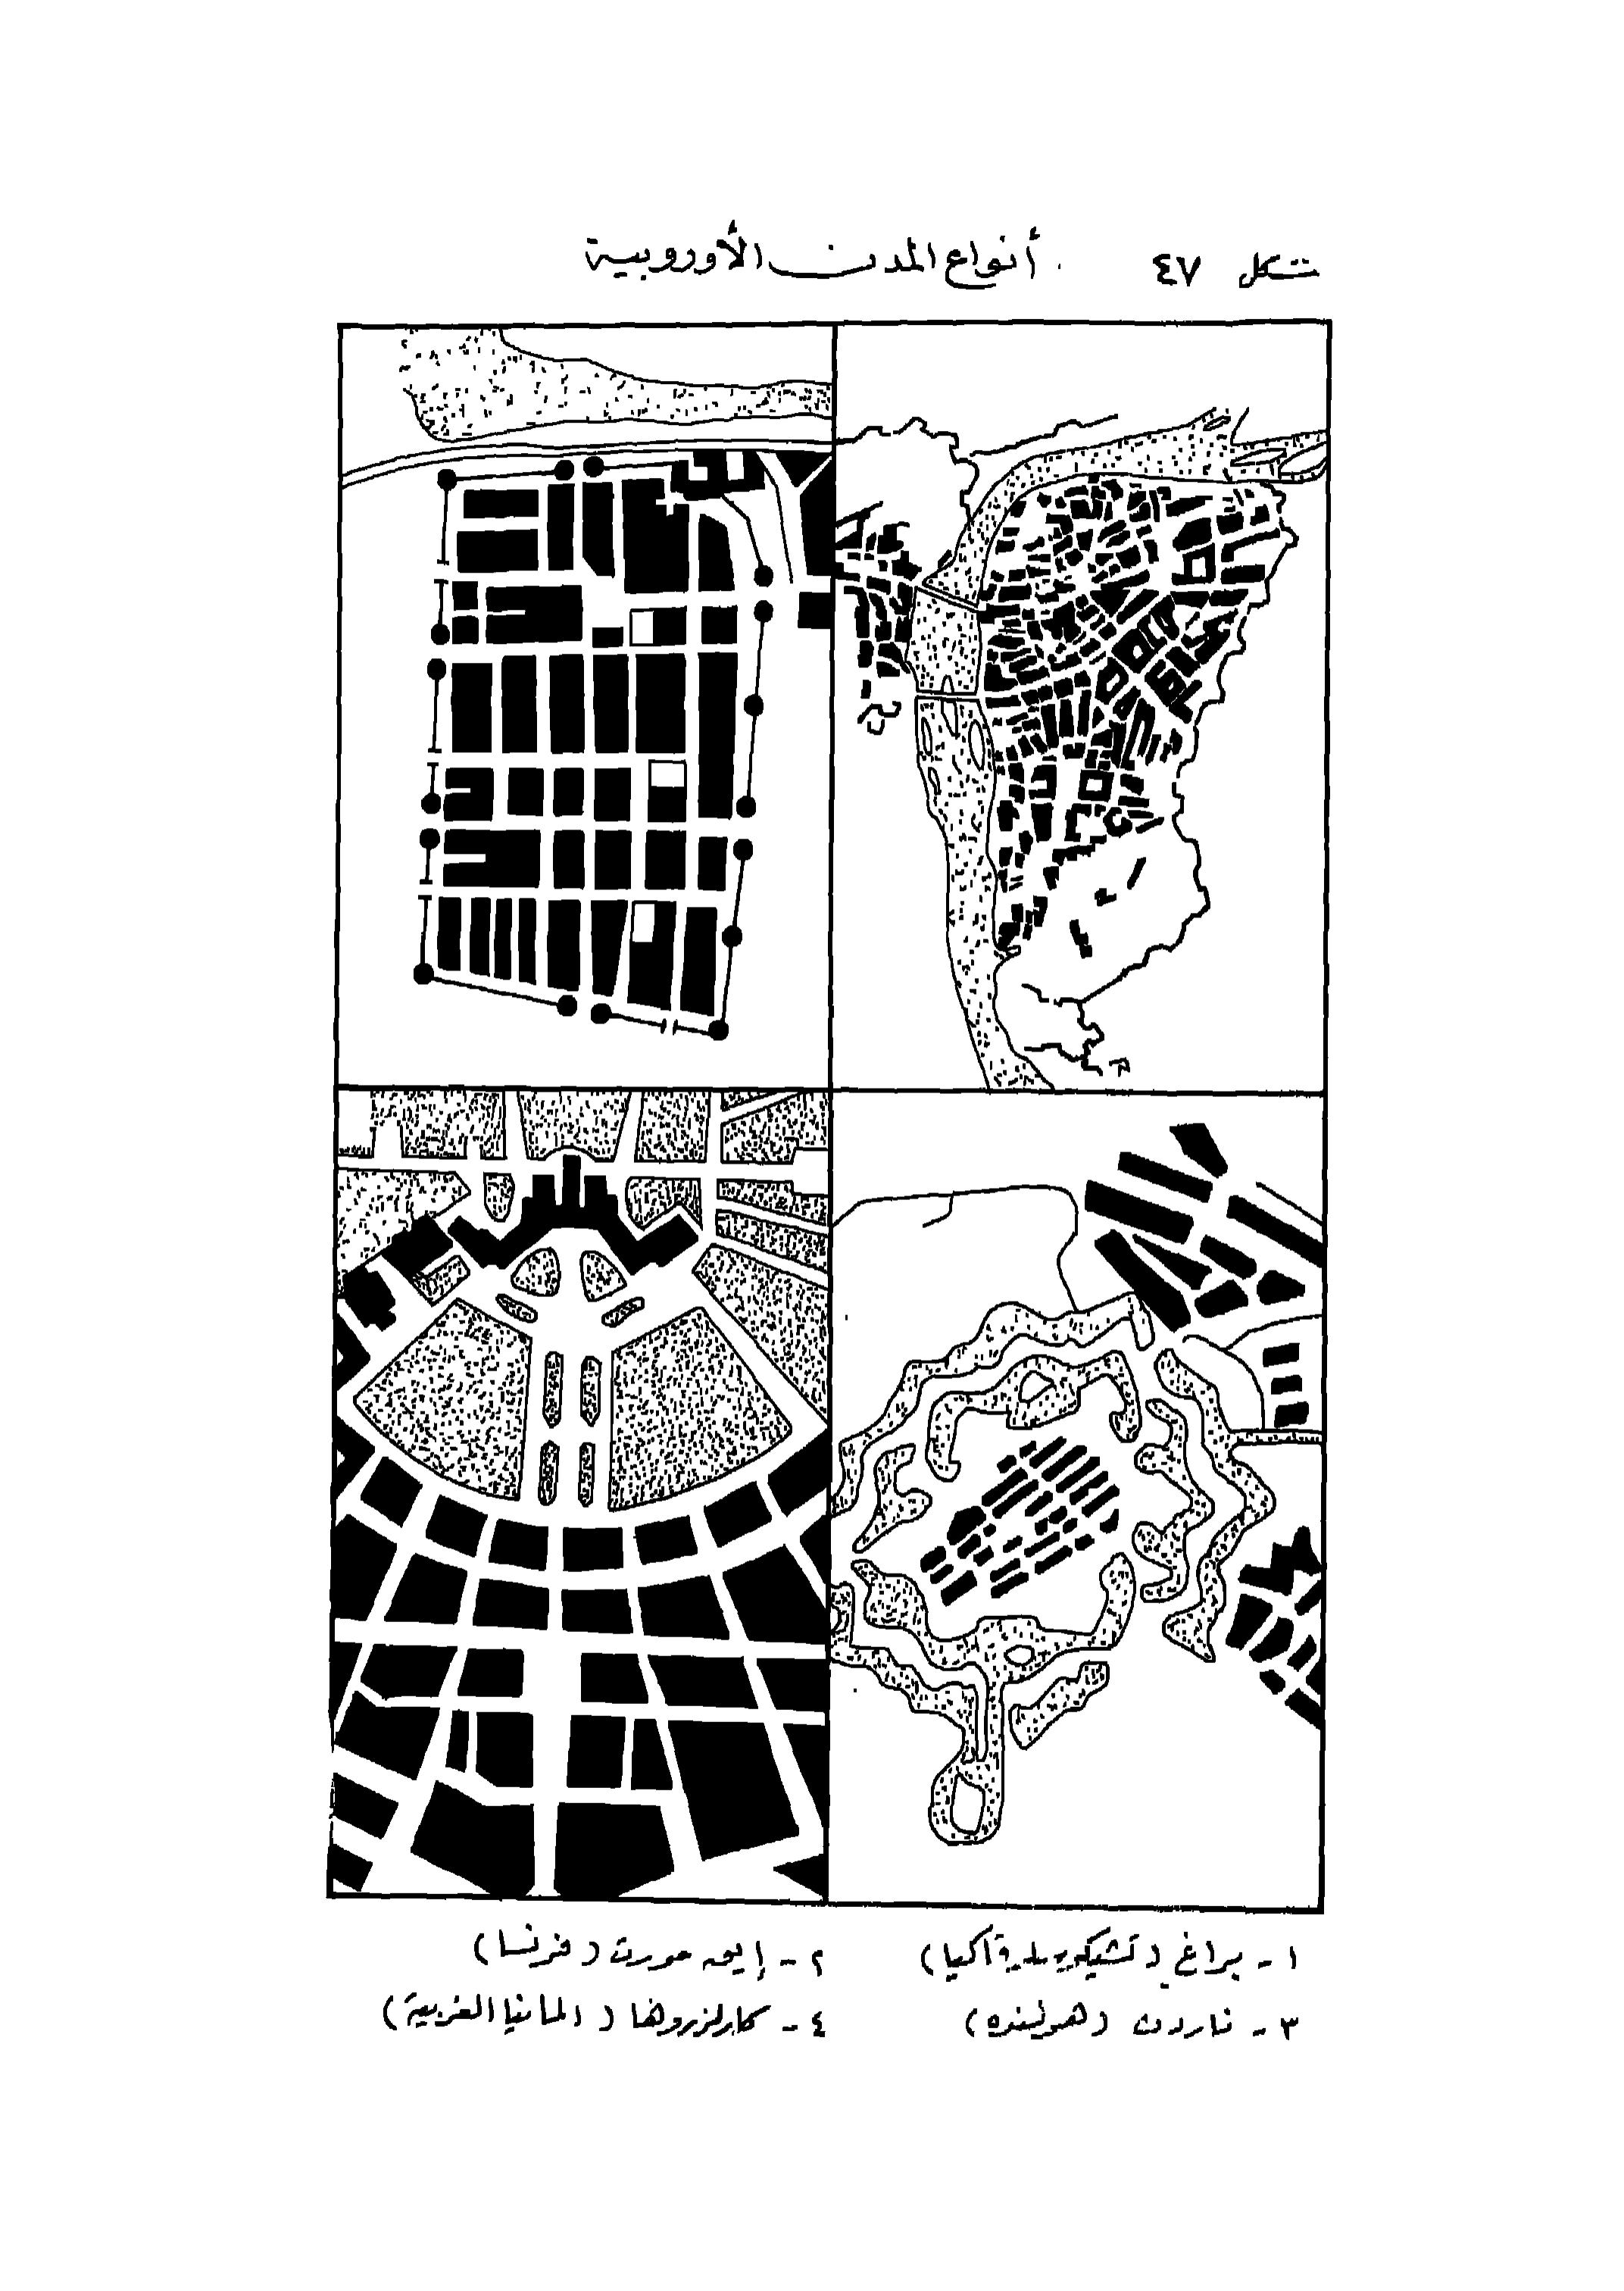 شكل ٤٧ أنواع المدن الأوروبية
١ - براغ (تشيكوسلوفاكيا) ٢ - إيج مورت (فرنسا)
٣ - ناردن (هولنده) ٤ - كارلزروها (المانيا الغربية)